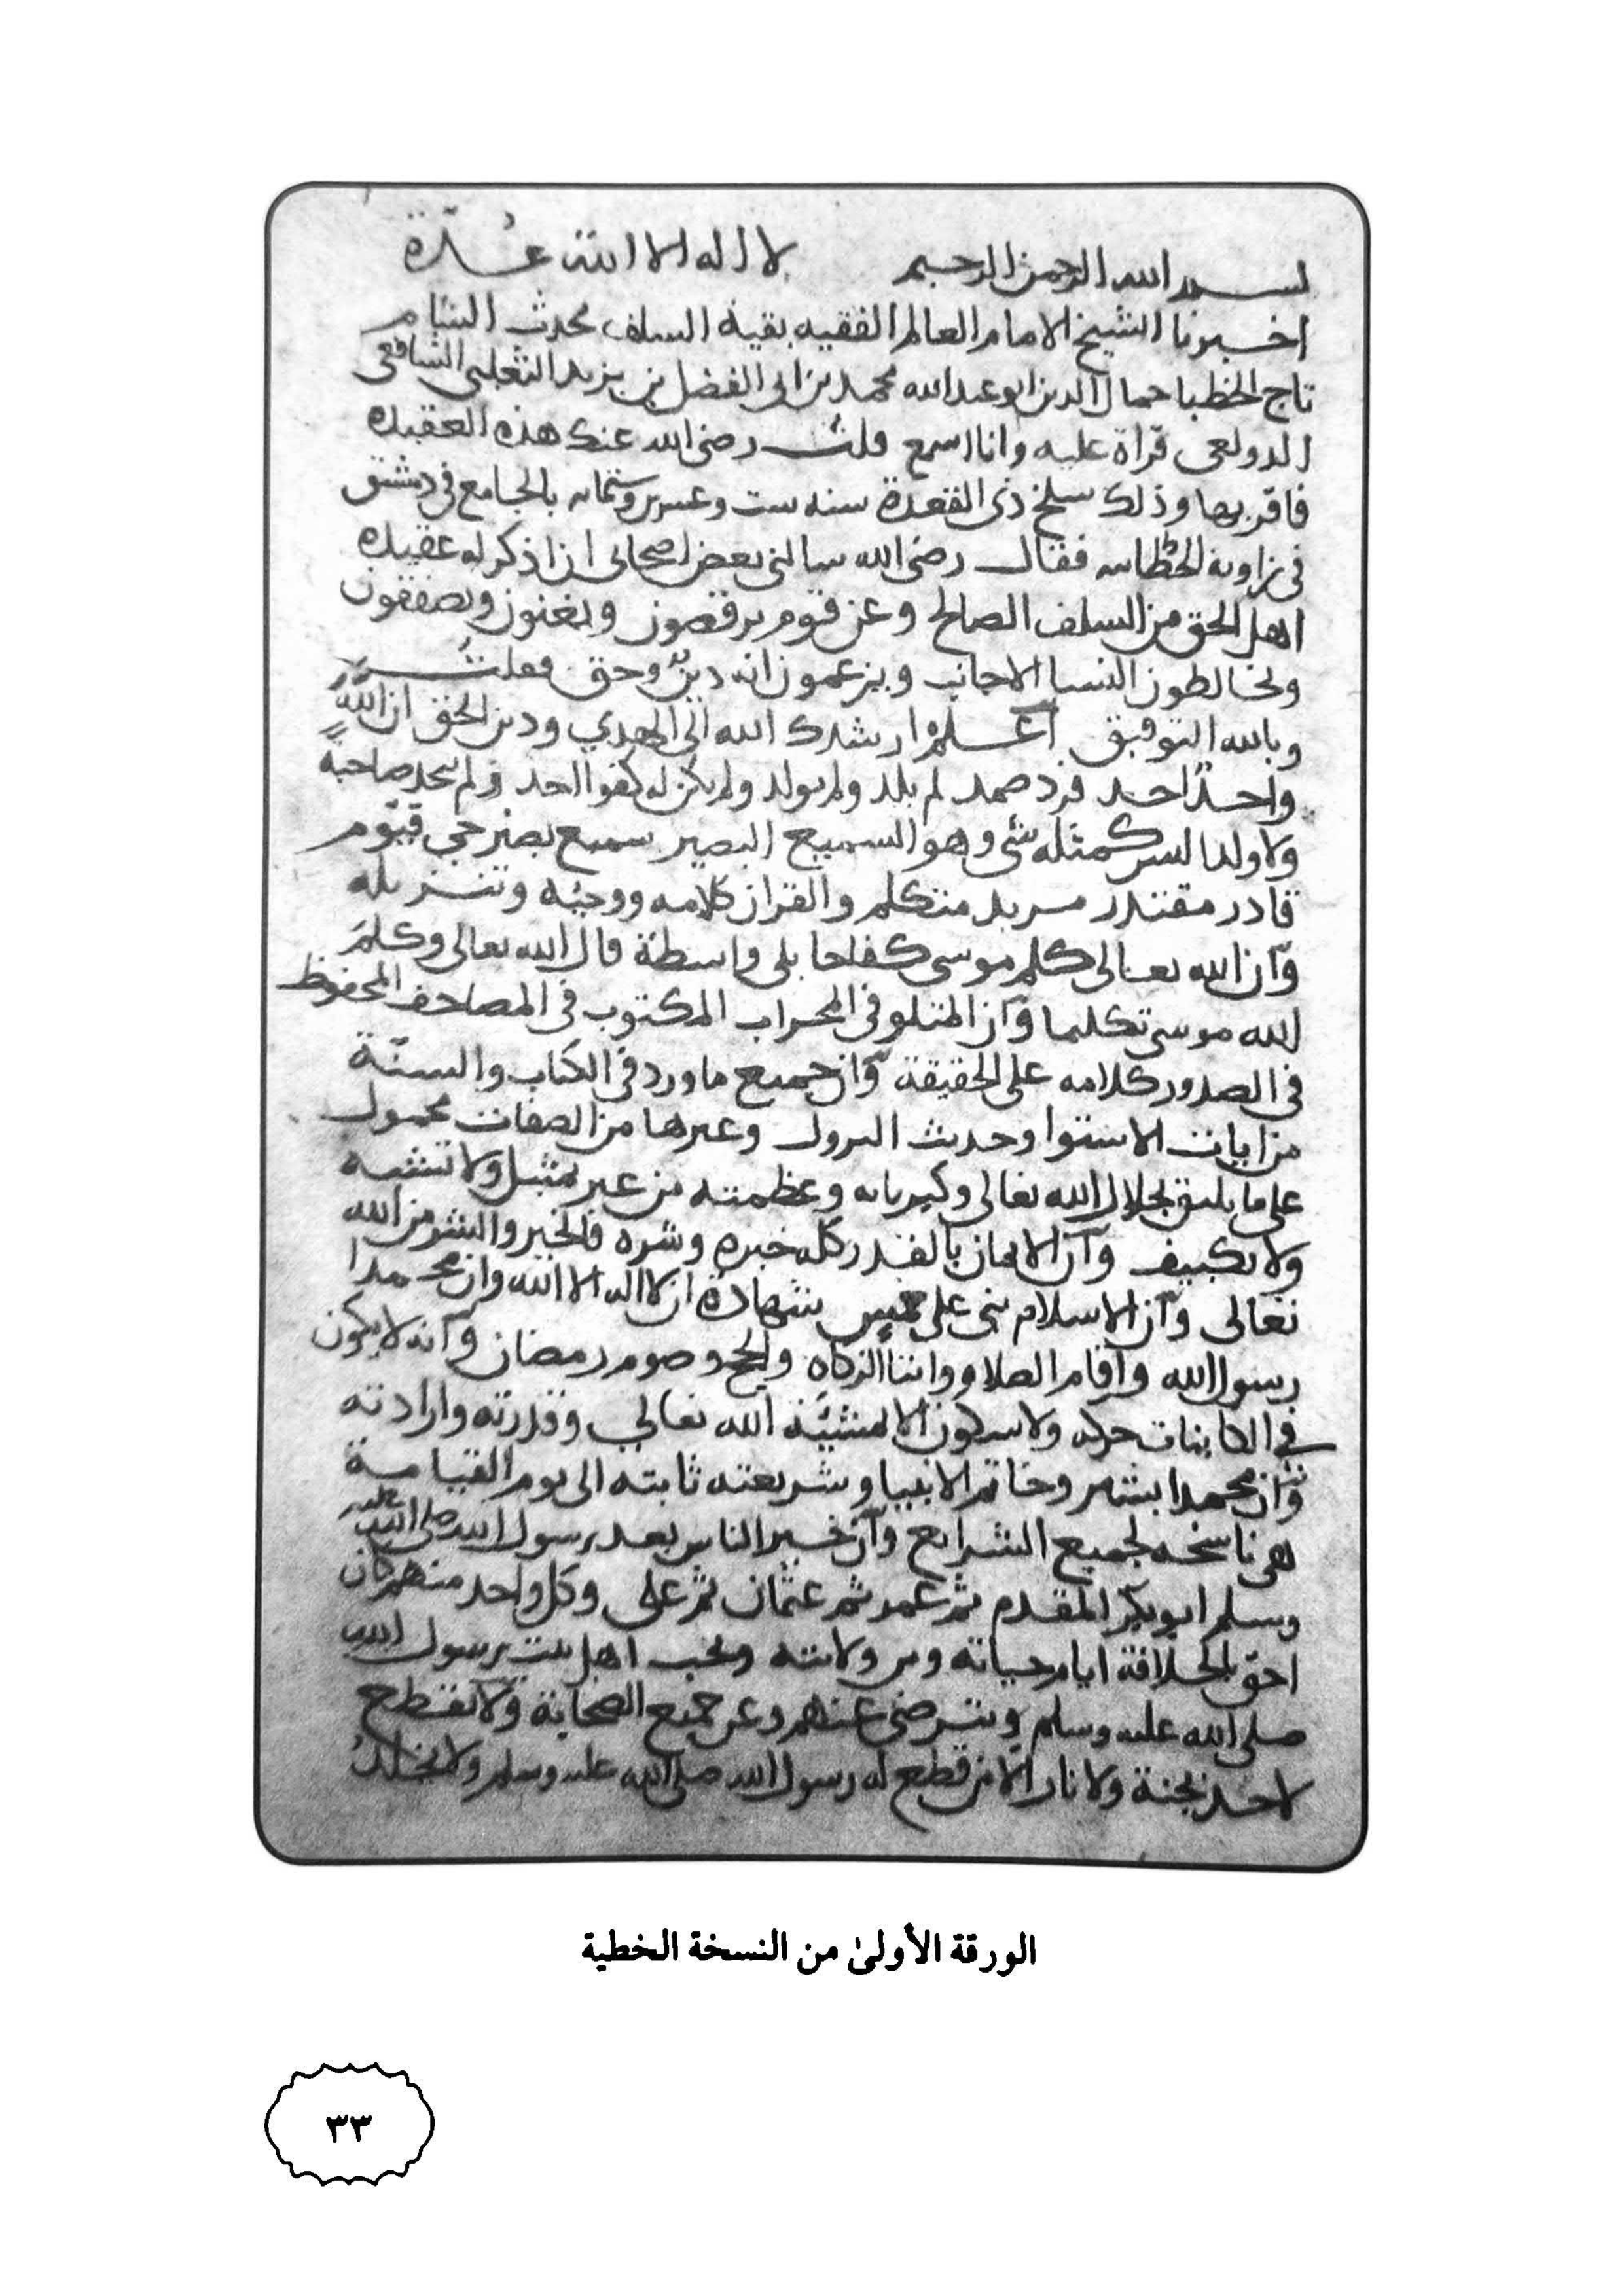 بسم الله الرحمن الرحيم لا اله الا الله عُدّة
اخبرنا الشيخ الامام العالم الفقيه بقية السلف محدث الشام
تاج الخطبا جمال الدين ابو عبد الله محمد بن ابي الفضل بن يزيد الثعلبي الشافعي
الدولعي قراة عليه وانا اسمع قلت رضي الله عنك هذه العقيدة
فاقر بها وذلك سلخ ذي القعدة سنه ست وعشرين وستمايه بالجامع في دمشق
في زاوية فقال رضي الله سالني بعض اصحابي ان اذكر له عقيدة
اهل الحق من السلف الصالح وعن قوم يرقصون ويغنون ويصفقون
ويخالطون النسا الاجانب ويزعمون انه دين وحق فقلت
وبالله التوفيق اعلم ارشدك الله الى الهدي ودين الحق ان الله
واحدٌ احد فرد صمد لم يلد ولم يولد ولم يكن له كفوا احد ولم يتخذ صاحبة
ولا ولدا ليس كمثله شي وهو السميع البصير سميع بصير حي قيوم
قادر مقتدر مريد متكلم والقران كلامه ووحيه وتنزيله
وآن الله تعالى كلم موسى كفاحا بلى واسطة قال الله تعالى وكلم
الله موسى تكليما وآن المتلو في المحراب المكتوب في المصاحف المحفوظ
في الصدور كلامه على الحقيقة وآن جميع ما ورد في الكتاب والسنّة
من ايات الاستوا وحديث النزول وغيرها من الصفات محمول
على ما يليق بجلال الله تعالى وكبريايه وعظمته من غير تمثيل ولا تشبيه
ولا تكييف وآن الايمان بالقدر كله خيره وشره فالخير والشر من الله
تعالى وآن الاسلام بني على خمس شهادة ان لا اله الا الله وان محمدا
رسول الله واقام الصلاه وايتا الزكاه والحج وصوم رمضان وآنه لا يكون
في الكاينات حركه ولا سكون الا بمشيّة الله تعالى وقدرته وارادته
وآن محمدا بشر وخاتم الانبيا وشريعته ثابته الى يوم القيامة
هي ناسخه لجميع الشرايع وآن خير الناس بعد رسول الله صلى الله عليه
وسلم ابو بكر المقدم ثم عمر ثم عثمان ثم على وكل واحد منهم كان
احق بالخلافة ايام حياته ولايته ونحب اهل بيت رسول الله
صلى الله عليه وسلم ونترضى عنهم وعن جميع الصحابة ولا نقطع
لاحد بجنة ولا نار الا من قطع له رسول الله صلى الله عليه وسلم ولا يخلد
الورقة الأولىٰ من النسخة الخطية
٣٣